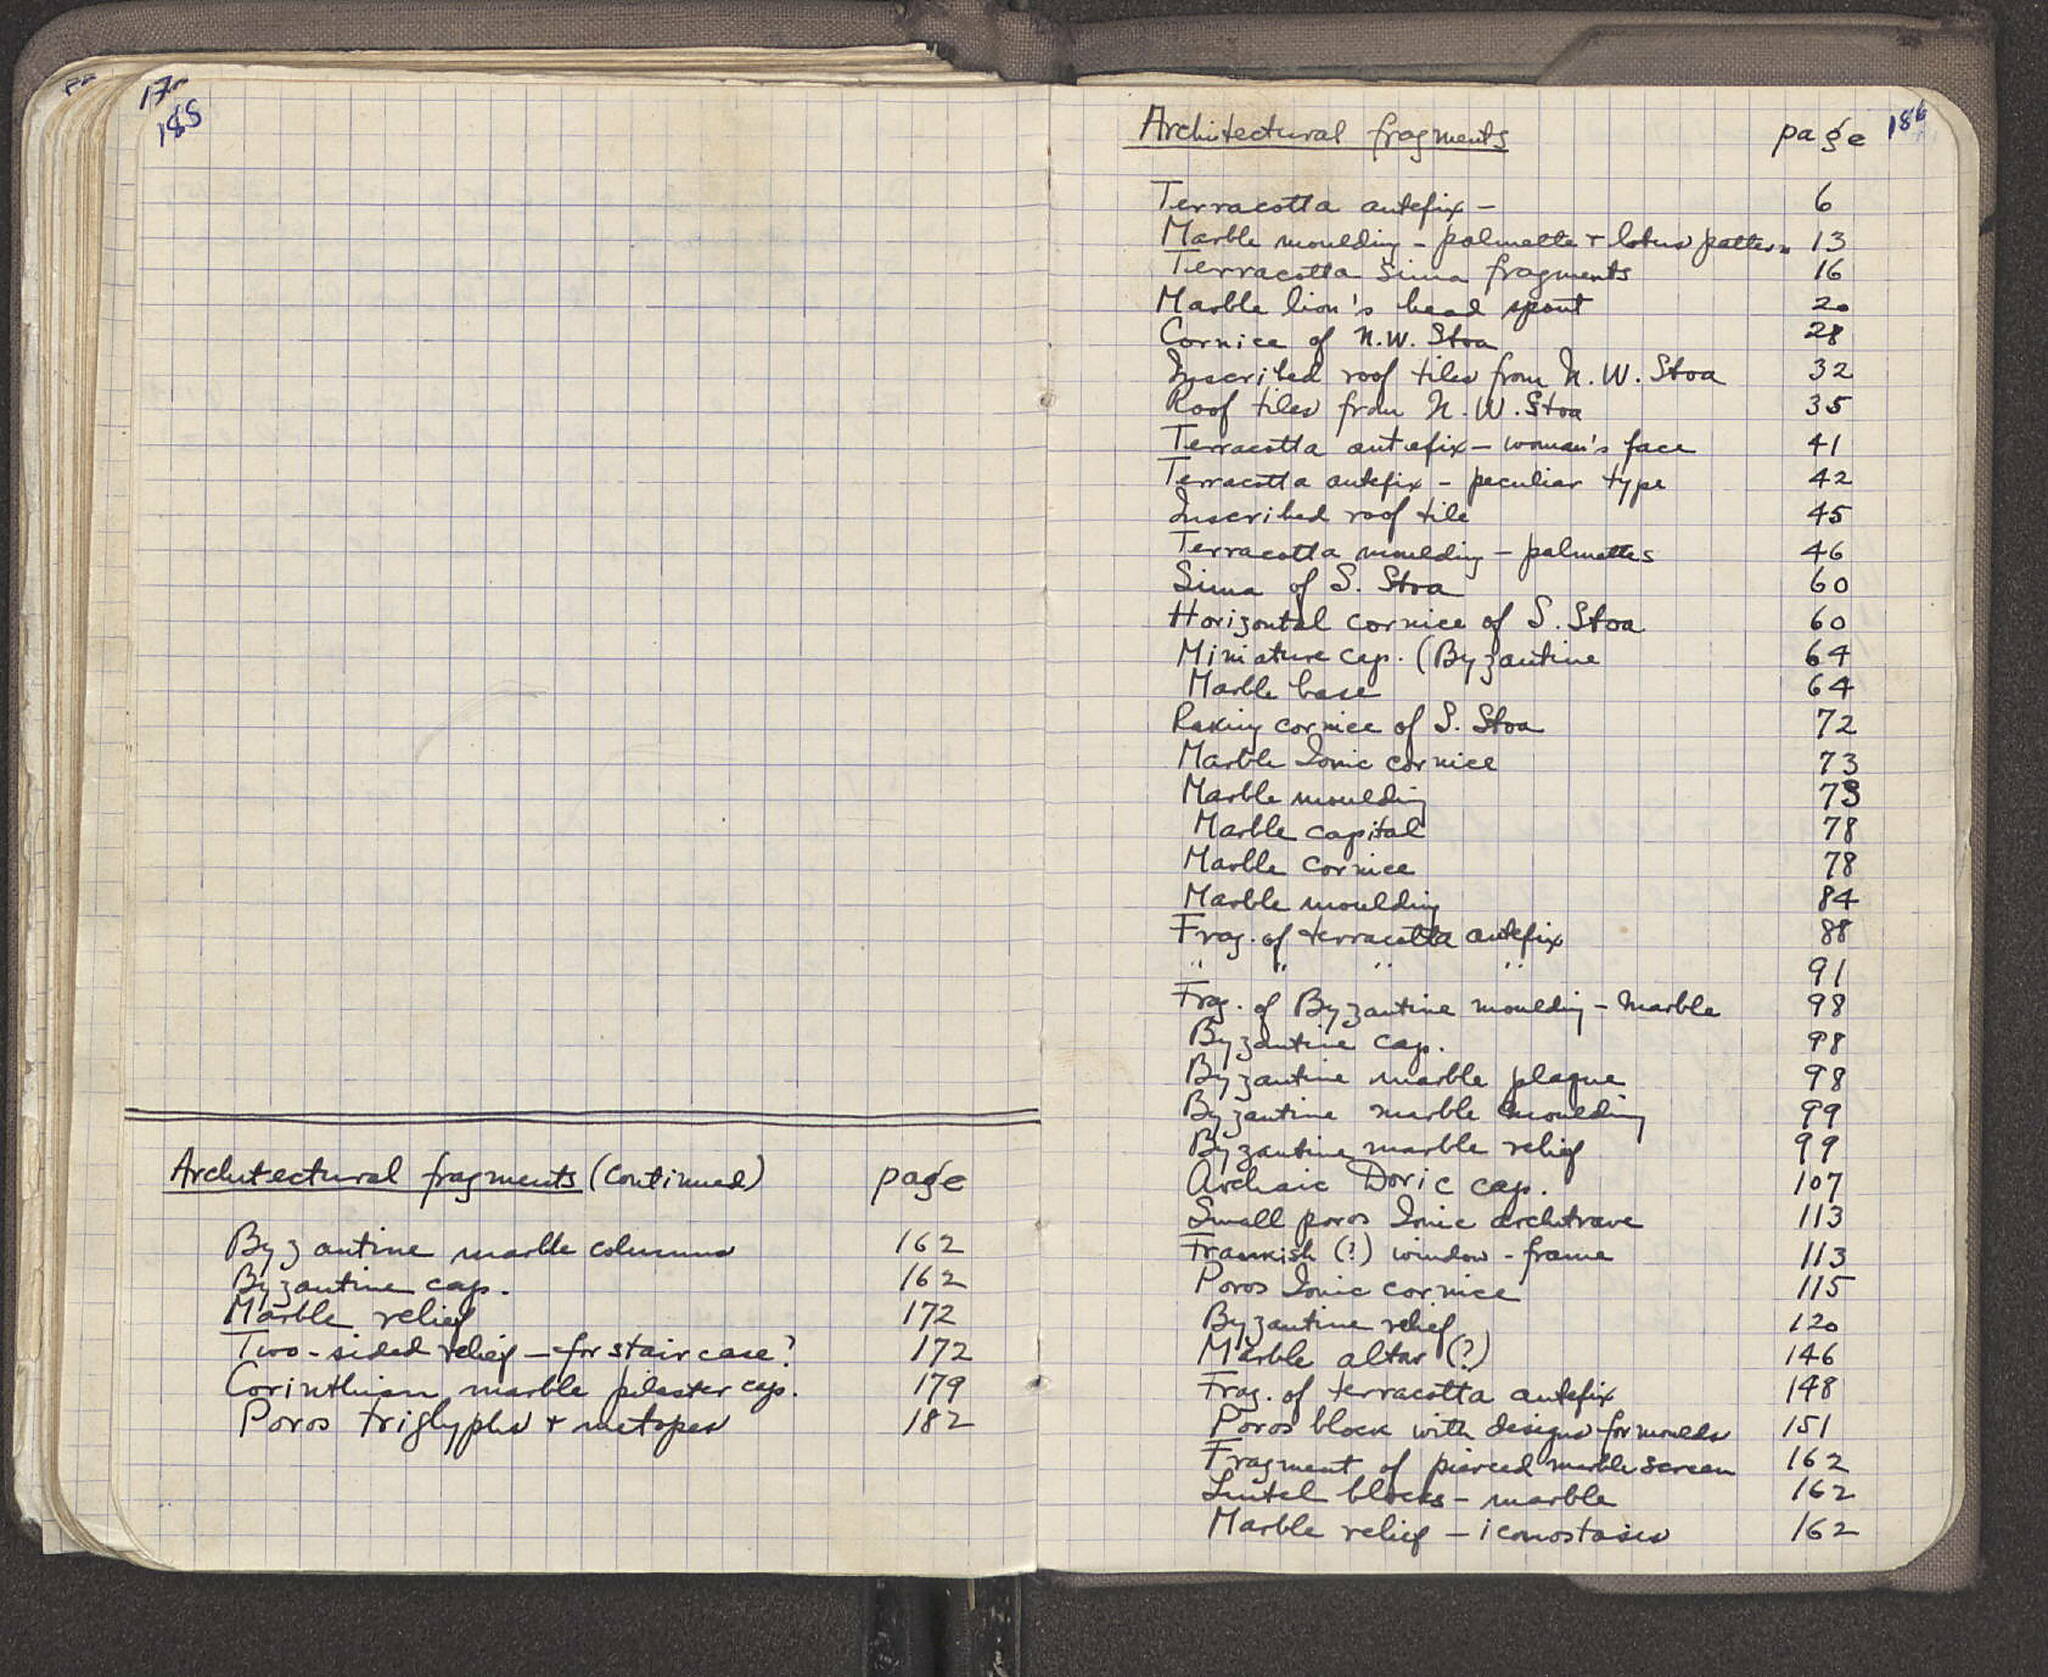 185
Architectural fragments (continued) page
Byzantine marble columns 162
Byzantine cap. 162
Marble relief 172
Two-sided relief – for staircase? 172
Corinthian marble pilaster cap. 179
Poros triglyphs + metopes 182
186
Architectural fragments page
Terracotta antefix – 6
Marble moulding – palmette + lotus pattern 13
Terracotta sima fragments 16
Marble lion's head spout 20
Cornice of N.W. Stoa 28
Inscribed roof tiles from N.W. Stoa 32
Roof tiles from N.W. Stoa 35
Terracotta antefix – woman's face 41
Terracotta antefix – peculiar type 42
Inscribed roof tile 45
Terracotta moulding – palmettes 46
Sima of S. Stoa 60
Horizontal cornice of S. Stoa 60
Miniature cap. (Byzantine 64
Marble base 64
Raking cornice of S. Stoa 72
Marble Ionic cornice 73
Marble moulding 73
Marble capital 78
Marble cornice 78
Marble moulding 84
Frag. of terracotta antefix 88
" " " " 91
Frag. of Byzantine moulding – Marble 98
Byzantine cap. 98
Byzantine marble plaque 98
Byzantine marble moulding 99
Byzantine marble relief 99
Archaic Doric cap. 107
Small poros Ionic architrave 113
Frankish (?) window-frame 113
Poros Ionic cornice 115
Byzantine relief 120
Marble altar (?) 146
Frag. of terracotta antefix 148
Poros block with designs for moulds 151
Fragment of pierced marble screen 162
Lintel blocks – marble 162
Marble relief – iconostasis 162